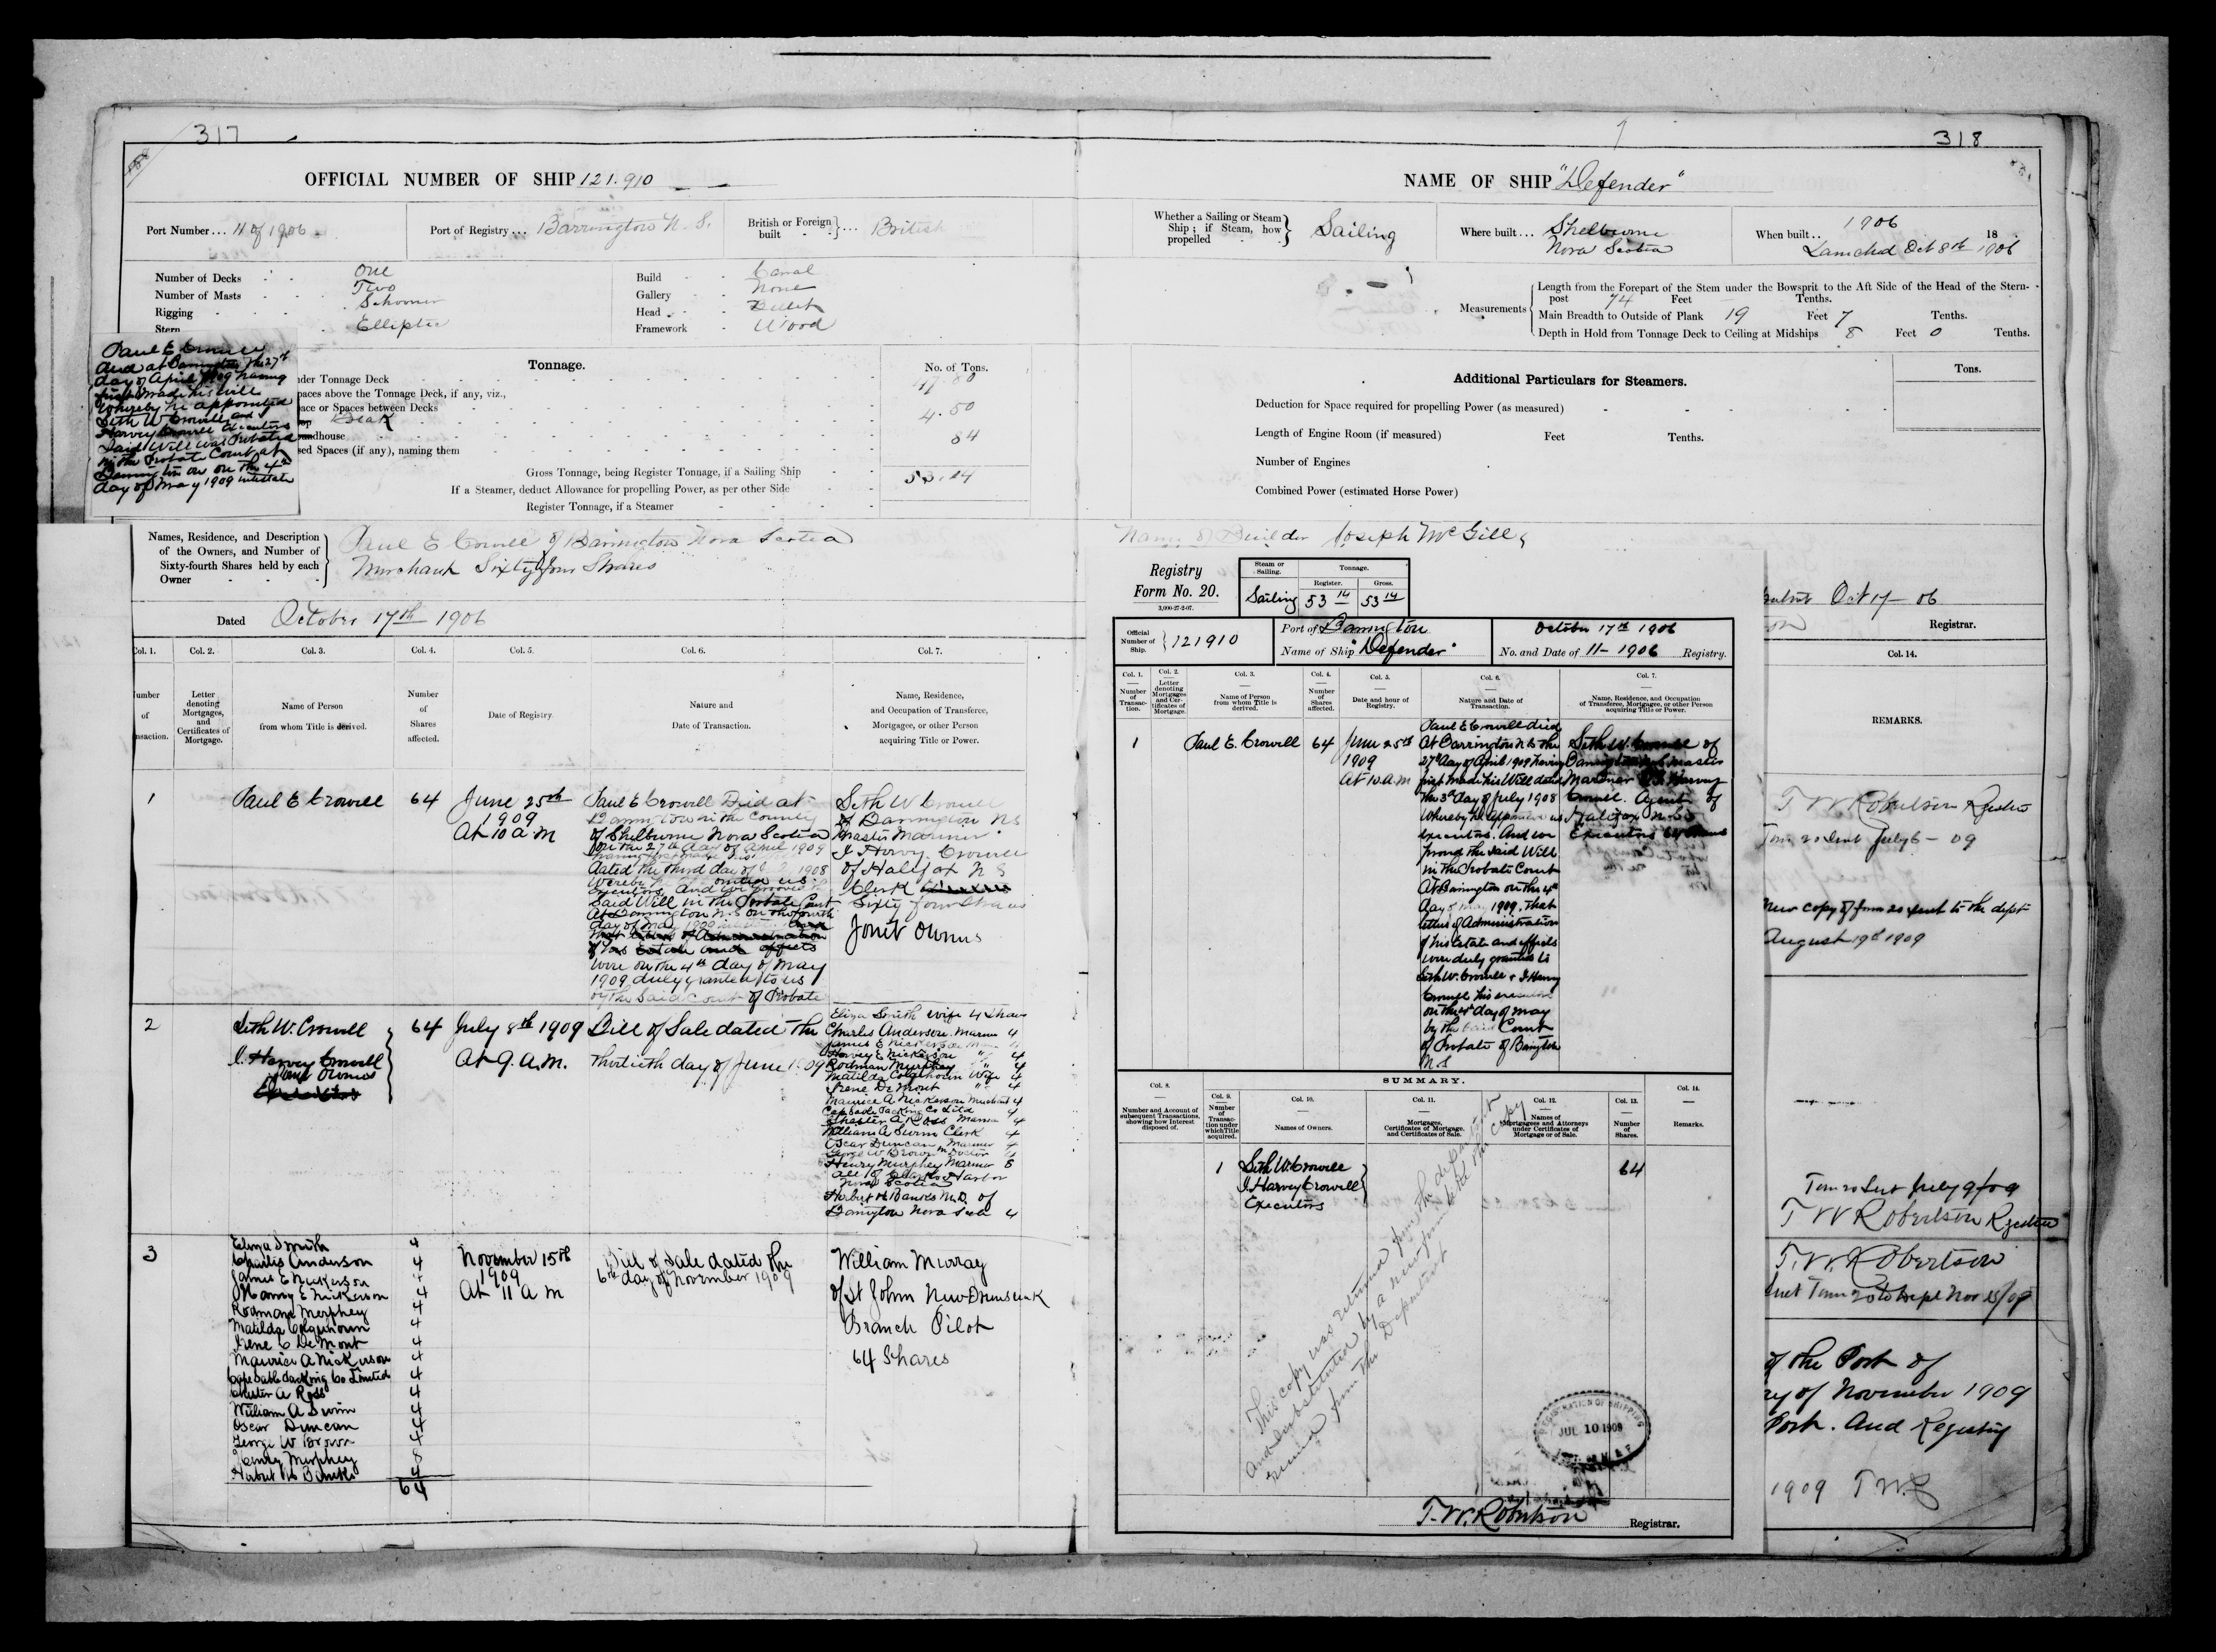 317
OFFICIAL NUMBER OF SHIP 121.910
Port Number... 11 of 1906
Port of Registry... Barrington N. S.
British or Foreign built ... British
Number of Decks One
Number of Masts Two
Rigging Schooner
Stern Elliptic
Build Carval
Gallery None
Head Billet
Framework Wood
Paul E Crowell
died at Barrington the 27th
day of April 1909 having
first made his Will
whereby he appointed
Seth W Crowell and
Harvey Crowell Executors
Said Will was Probated
in the Probate Court at
Barrington on the 4th
day of May 1909
Tonnage.
No. of Tons.
nder Tonnage Deck 47.80
paces above the Tonnage Deck, if any, viz.,
pace or Spaces between Decks
op Break 4.50
oundhouse 84
sed Spaces (if any), naming them
Gross Tonnage, being Register Tonnage, if a Sailing Ship 53.14
If a Steamer, deduct Allowance for propelling Power, as per other Side
Register Tonnage, if a Steamer
Names, Residence, and Description of the Owners, and Number of Sixty-fourth Shares held by each Owner
Paul E Crowell of Barrington Nova Scotia
Merchant Sixty four Shares
Dated October 17th 1906
Col. 1. Col. 2. Col. 3. Col. 4. Col. 5. Col. 6. Col. 7.
umber of nsaction.
Letter denoting Mortgages, and Certificates of Mortgage.
Name of Person from whom Title is derived.
Number of Shares affected.
Date of Registry.
Nature and Date of Transaction.
Name, Residence, and Occupation of Transferee, Mortgagee, or other Person acquiring Title or Power.
1 Paul E Crowell 64
June 25th
1909
At 10 a m
Paul E Crowell Died at
Barrington in the County
of Shelburne Nova Scotia
on the 27th day of April 1909
having first made his
dated the third day of 1908
Executors, And we proved the
Said Will in the Probate Court
At Barrington N.S on the fourth
day of May 1909
of his Estate and effects
were on the 4th day of May
1909 duly granted to us
by the said Court of Probate
Seth W Crowell
of Barrington N S
Master Mariner
I Harvey Crowell
of Halifax N S
Clerk
Sixty four Shares
Joint Owners
2 Seth W. Crowell
I. Harvey Crowell
Joint Owners
64 July 8th 1909
At 9. a.m.
Bill of Sale dated the
thirtieth day of June 1909
Eliza Smith wife 4 Shares
Charles Anderson Mariner 4
James E Nickerson 4
Harvey E Nickerson " 4
Rodman Murphey " 4
Matilda Colquhoun Wife 4
Irene De Mont " 4
Maurice A Nickerson Merchant 4
Cape Sable Packing Co Ltd 4
Chester A Ross Mariner 4
William A Swim Clerk 4
Oscar Duncan Mariner 4
George W Brown 4
Henry Murphey Mariner 8
all of Clarks Harbor
Nova Scotia
Herbert H Banks M.D. of
Barrington Nova Scotia 4
3 Eliza Smith 4
Charles Anderson 4
James E Nickerson 4
Harvey E Nickerson 4
Rodman Murphey 4
Matilda Colquhoun 4
Irene C De Mont 4
Maurice A Nickerson 4
Cape Sable Packing Co Limited 4
Chester A Ross 4
William A Swim 4
Oscar Duncan 4
George W Brown 4
Henry Murphey 8
Herbert H Banks 4
64
November 15th
1909
At 11 a m
Bill of Sale dated the
6th day of November 1909
William Murray
of St John New Brunswick
Branch Pilot
64 Shares
318
NAME OF SHIP "Defender"
Whether a Sailing or Steam Ship; if Steam, how propelled Sailing
Where built... Shelburne
Nova Scotia
When built.. 1906 18
Launched Oct 8th 1906
Measurements
Length from the Forepart of the Stem under the Bowsprit to the Aft Side of the Head of the Stern-
post 74 Feet Tenths.
Main Breadth to Outside of Plank 19 Feet 7 Tenths.
Depth in Hold from Tonnage Deck to Ceiling at Midships 8 Feet 0 Tenths.
Additional Particulars for Steamers.
Tons.
Deduction for Space required for propelling Power (as measured)
Length of Engine Room (if measured) Feet Tenths.
Number of Engines
Combined Power (estimated Horse Power)
Name of Builder Joseph McGill
Registry
Form No. 20.
3,000-27-2-07.
Steam or Sailing. Tonnage.
Register. Gross.
Sailing 53 14 53 14
Official Number of Ship. 121910
Port of Barrington
Name of Ship "Defender"
October 17th 1906
No. and Date of 11- 1906 Registry.
Col. 1. Col. 2. Col. 3. Col. 4. Col. 5. Col. 6. Col. 7.
Number of Transaction.
Letter denoting Mortgages and Certificates of Mortgage.
Name of Person from whom Title is derived.
Number of Shares affected.
Date and hour of Registry.
Nature and Date of Transaction.
Name, Residence, and Occupation of Transferee, Mortgagee, or other Person acquiring Title or Power.
1 Paul E. Crowell 64 June 25th
1909
At 10 a.m
Paul E Crowell died
At Barrington N S the
27th day of April 1909 having
first made his Will dated
the 3rd day of July 1908
whereby he appointed us
executors. And we
proved the said Will
in the Probate Court
At Barrington on the 4th
day of May 1909. that
letters of Administration
of his Estate and effects
were duly granted to
Seth W. Crowell & I Harvey
Crowell his executors
on the 4th day of May
by the said Court
of Probate of Barrington
N.S
Seth W. Crowell of
Barrington Master
Mariner & I. Harvey
Crowell. Agent of
Halifax N. S
Executors 64 Shares
SUMMARY.
Col. 8. Col. 9. Col. 10. Col. 11. Col. 12. Col. 13. Col. 14.
Number and Account of subsequent Transactions, showing how Interest disposed of.
Number of Transaction under which Title acquired.
Names of Owners.
Mortgages, Certificates of Mortgage, and Certificates of Sale.
Names of Mortgagees and Attorneys under Certificates of Mortgage or of Sale.
Number of Shares.
Remarks.
1 Seth W. Crowell
I. Harvey Crowell
Executors
64
This copy was returned from the department
And substituted by a new form 20 the copy
from the Department
REGISTRATION OF SHIPPING
JUL 10 1909
T. W. Robertson Registrar.
Oct 17 - 06
Registrar.
Col. 14.
REMARKS.
T. W. Robertson Registrar
Form 20 Sent July 6 - 09
New copy of form 20 sent to the dept
August 19th 1909
Form 20 Sent July 9/09
T W Robertson Registrar
T. W. Robertson
Sent Form 20 to Dept Nov 25/09
of the Port of
ry of November 1909
Port. And Registry
1909 T W R